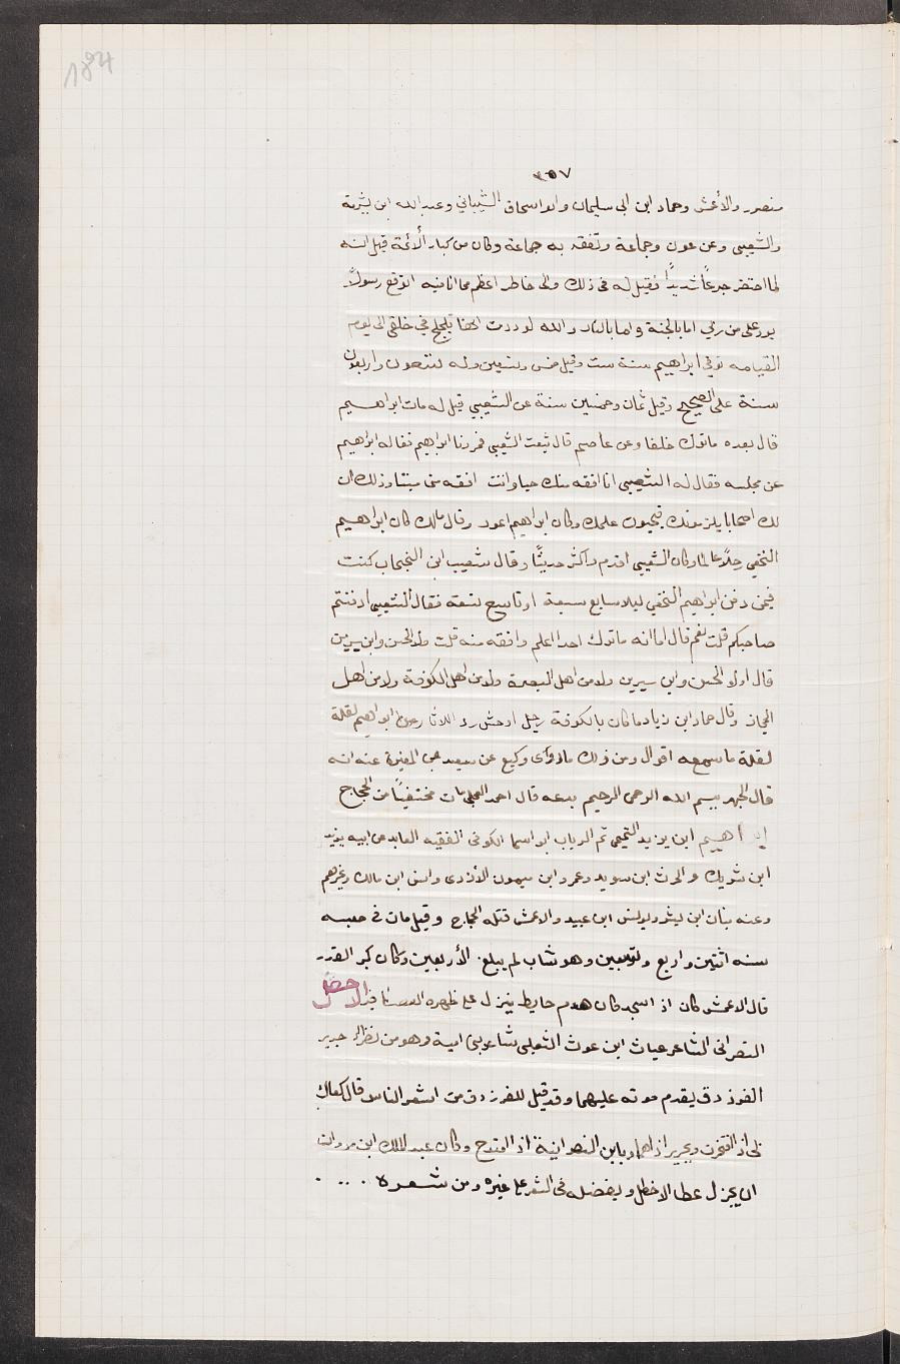 184
٣٥٧
منصور والأعمش وحماد ابن ابى سليمان وابو اسحاق الشيباني وعبد الله ابن شبرمة
والشعبى وعن عون وجماعة وتفقه به جماعة وكان من كبار ألائمة قيل انه
لما احتضر جزعاً شديداً فقيل له فى ذلك واى خاطر اعظم مما انا فيه اتوقع رسولاً
يرد على من ربي اما بالجنة واما بالنار والله لوددت انها تلجلج في حلقى الى يوم
القيامه توفي ابراهيم سنة ست وقيل خمس وتسعين وله تسع واربعون
سنة على الصحيح وقيل ثمان وخمسين سنة عن الشعبي قيل له مات ابراهيم
قال بعده ماترك خلفا وعن عاصم قال تبعت الشعبى فمررنا ابراهيم فقا له ابراهيم
عن مجلسه فقال له الشعبى انا افقه منك حيا وانت افقه منى ميتا وذلك ان
لك اصحابا يلزمونك فيحيون علمك وكان ابراهيم اعور وقال مالك كان ابراهيم
النخعي رجلاً عالما وكان الشعبي اقدم واكثر حديثًا وقال شعيب ابن الحبحاب كنت
فيمن دفن ابراهيم النخعي ليلا سابع سبعة او تاسع تسعة فقال الشعبى ادفنتم
صاحبكم قلت نعم قال اما انه ماترك احدا اعلم وافقه منه قلت ولا الحسن وابن سيرين
قال اولا الحسن وابن سيرين ولا من اهل البصرة ولا من اهل الكوفة ولا من اهل
الحجاز وقال حماد ابن زياد ما كان بالكوفة رجل اوحش رد اللاثار من ابراهيم لقلة
لقلة ما سمعه اقوال ومن ذلك ماروى وكيع عن سعيد عن المغيرة عنه انه
قال الجهر ببسم الله الرحمن الرحيم بدعه قال احمد العجلى مات مختفيًا من الحجاج
ابراهيم ابن يزيد التيمى تم الرباب ابو اسما الكوفى الفقيه العابد عن ابيه يزيد
ابن شريك والحرث ابن سويد وعمرو ابن ميمون الأزدى وانس ابن مالك وغيرهم
وعنه بنان ابن بشر ويونس ابن عبيد والاعمش قتله الحجاج وقيل مات فى حبسه
سنه اثنين واربع وتسعين وهو شاب لم يبلغ الأربعين وكان كبر القدر
قال الاعمش كان اذ اسجد كان هدم حايط ينزل على ظهره العصافير الاخطل
النصرانى الشاعر غياث ابن غوث الثعلبى شاعر بنى امية وهو من نظرا جرير
الفرزدق يقدم موته عليهما وقد قيل للفرزدق من اشعر الناس قال كفاك
بى اذ افتخرت وبجرير اذ اهجا وبابن النصرانية اذ امتدح وكان عبد الملك ابن مروان
ان يجزل عطا الاخطل ويفضله فى الشعر على غيره ومن شعره